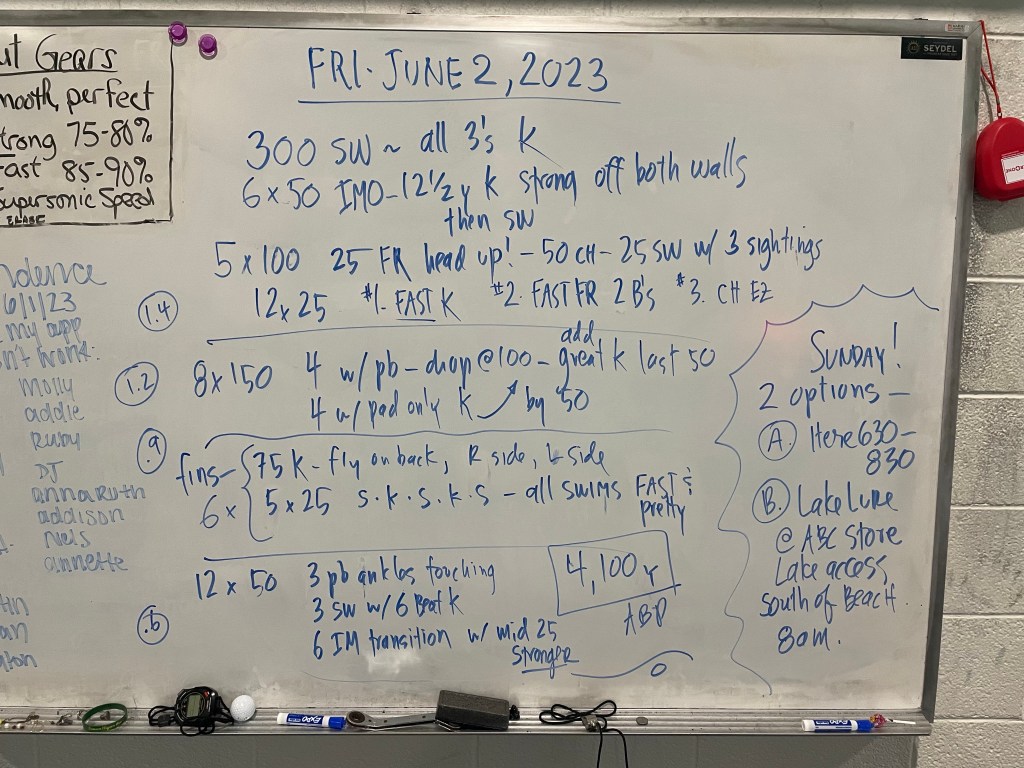 ut Gears
mooth, perfect
trong 75-80%
Fast 85-90%
Supersonic Speed
ERASE
SEYDEL
FRI. JUNE 2, 2023
300 SW ~ all 3's K
6 x 50 IMO - 12 1/2 y K strong off both walls
then SW
5 x 100 25 FR head up! - 50 CH - 25 SW w/ 3 sightings
12 x 25 #1. FAST K #2. FAST FR 2 B's #3. CH EZ
1.4
8 x 150 4 w/ pb - drop @ 100 - add great K last 50
4 w/ pad only K by 50
1.2
fins - 75 K - fly on back, R side, L side
6 x 5 x 25 S.K.S.K.S - all SWIMS FAST & pretty
.9
12 x 50 3 pb ankles touching
3 SW w/ 6 Beat K
6 IM transition w/ mid 25
Stronger
.6
4,100 Y
ABP
SUNDAY!
2 options -
A. Here 630-
830
B. Lake Lure
@ ABC Store
Lake access
South of Beach.
8am.
6/1/23
my app
Molly
addie
Ruby
DJ
annaRuth
addison
Niels
annette
EXPO
EXPO